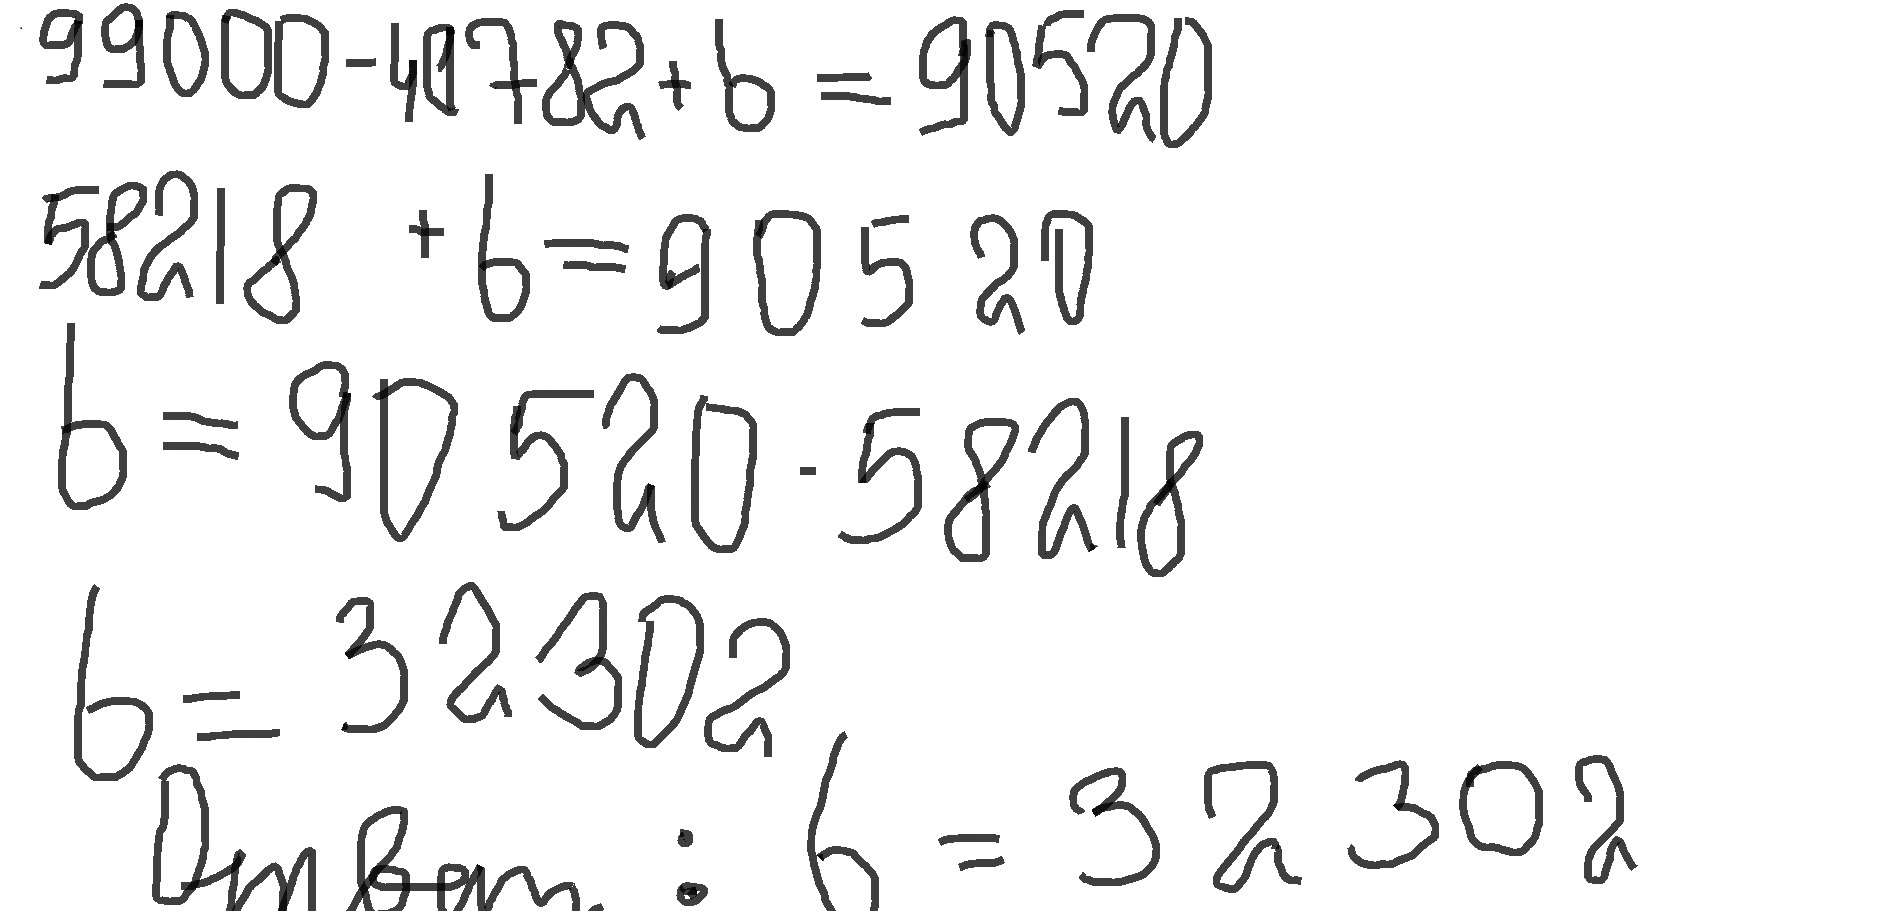 99000-40782+b=90520
58218 +b=90520
b=90520-58218
b=32302
Ответ: b=32302